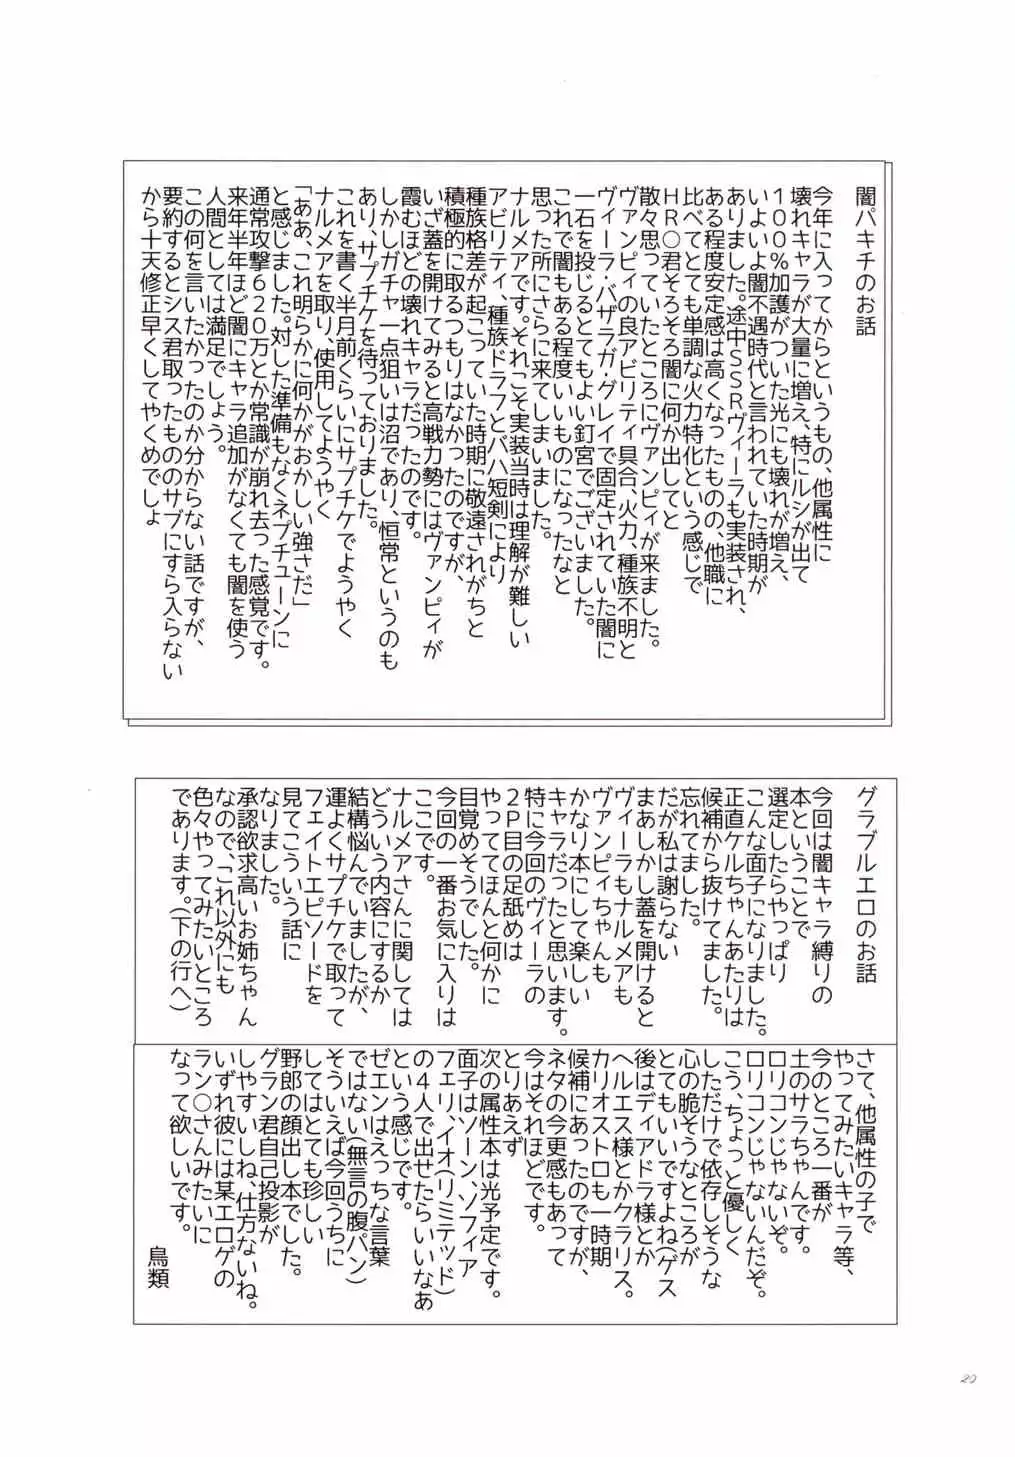 闇パキチのお話
今年に入ってからというもの、他属性に
壊れキャラが大量に増え、特にルシが出て
100%加護がついた光にも壊れが増え、
いよいよ闇不遇時代と言われていた時期が
ありました。途中SSRヴィーラも実装され、
ある程度安定感は高くなったものの、他職に
比べてとても単調な火力特化という感じで
HR○君そろそろ闇に何か出してと
散々思っていたところにヴァンピィが来ました。
ヴァンピィの良アビリティ具合、火力、種族不明と
ヴィーラ・バザラガ・グレイで固定されていた闇に
一石を投じるとてもよい釘宮でございました。
これで闇もある程度いいものになったなと
思った所にさらに来てしまいました。
ナルメアです。それこそ実装当時は理解が難しい
アビリティ、種族ドラフとバハ短剣により
種族格差が起こっていた時期に敬遠されがちと
積極的に取るつもりはなかったのですが、
いざ蓋を開けてみると高戦力勢にはヴァンピィが
霞むほどの壊れキャラだったのです。
しかしガチャ一点狙いは沼であり、恒常というのも
あり、サプチケを待っておりました。
これを書く半月前くらいにサプチケでようやく
ナルメアを取り、使用してようやく
「ああ、これ明らかに何かがおかしい強さだ」
と感じました。対した準備もなくネプチューンに
通常攻撃620万とか常識が崩れ去った感覚です。
来年半年ほど闇にキャラ追加がなくても闇を使う
人間としては満足でしょう。
この何を言いたかったのか分からない話ですが、
要約するとシス君取ったもののサブにすら入らない
から十天修正早くしてやくめでしょ
グラブルエロのお話
今回は闇キャラ縛りの
本ということで
選定したらやっぱり
こんな面子になりました。
正直ケルちゃんあたりは
候補から抜けてました。
忘れてました。
だが私は謝らない
まあしかし蓋を開けると
ヴィーラもナルメアも
ヴァンピィちゃんも
かなり本にして楽しい
キャラだったと思います。
特に今回のヴィーラの
2P目の足舐めは
やっててほんと何かに
目覚めそうでした。
今回の一番お気に入りは
ここです。
ナルメアさんに関しては
どういう内容にするか
結構悩んでいましたが、
運よくサプチケで取って
フェイトエピソードを
見てこういう話に
なりました。
承認欲求高いお姉ちゃん
なので、「これ以外にも
色々やってみたいところ
であります。(下の行へ)
さて、他属性の子で
やってみたいキャラ等、
今のところ一番が
土のサラちゃんです。
ロリコンじゃないぞ。
ロリコンじゃないんだぞ。
こう、ちょっと優しく
しただけで依存しそうな
心の脆そうなところが
とてもいいですよね(ゲス
後はディアドラ様とか
ヘルエス様とかクラリス。
カリオストロも一時期
候補にあったのですが、
ネタの今更感もあって
今はそれほどです。
とりあえず
次の属性本は光予定です。
面子はソーン、ソフィア
フェリ、イオ(リミテッド)
の4人で出せたらいいなあ
という感じです。
ゼエンはえっちな言葉
ではない(無言の腹パン)
そういえば今回うちに
してはとても珍しい
野郎の顔出し本でした。
グラン君自己投影が
しやすいしね、仕方ないね。
いずれ彼には某エロゲの
ラン○さんみたいに
なって欲しいです。
鳥類
20